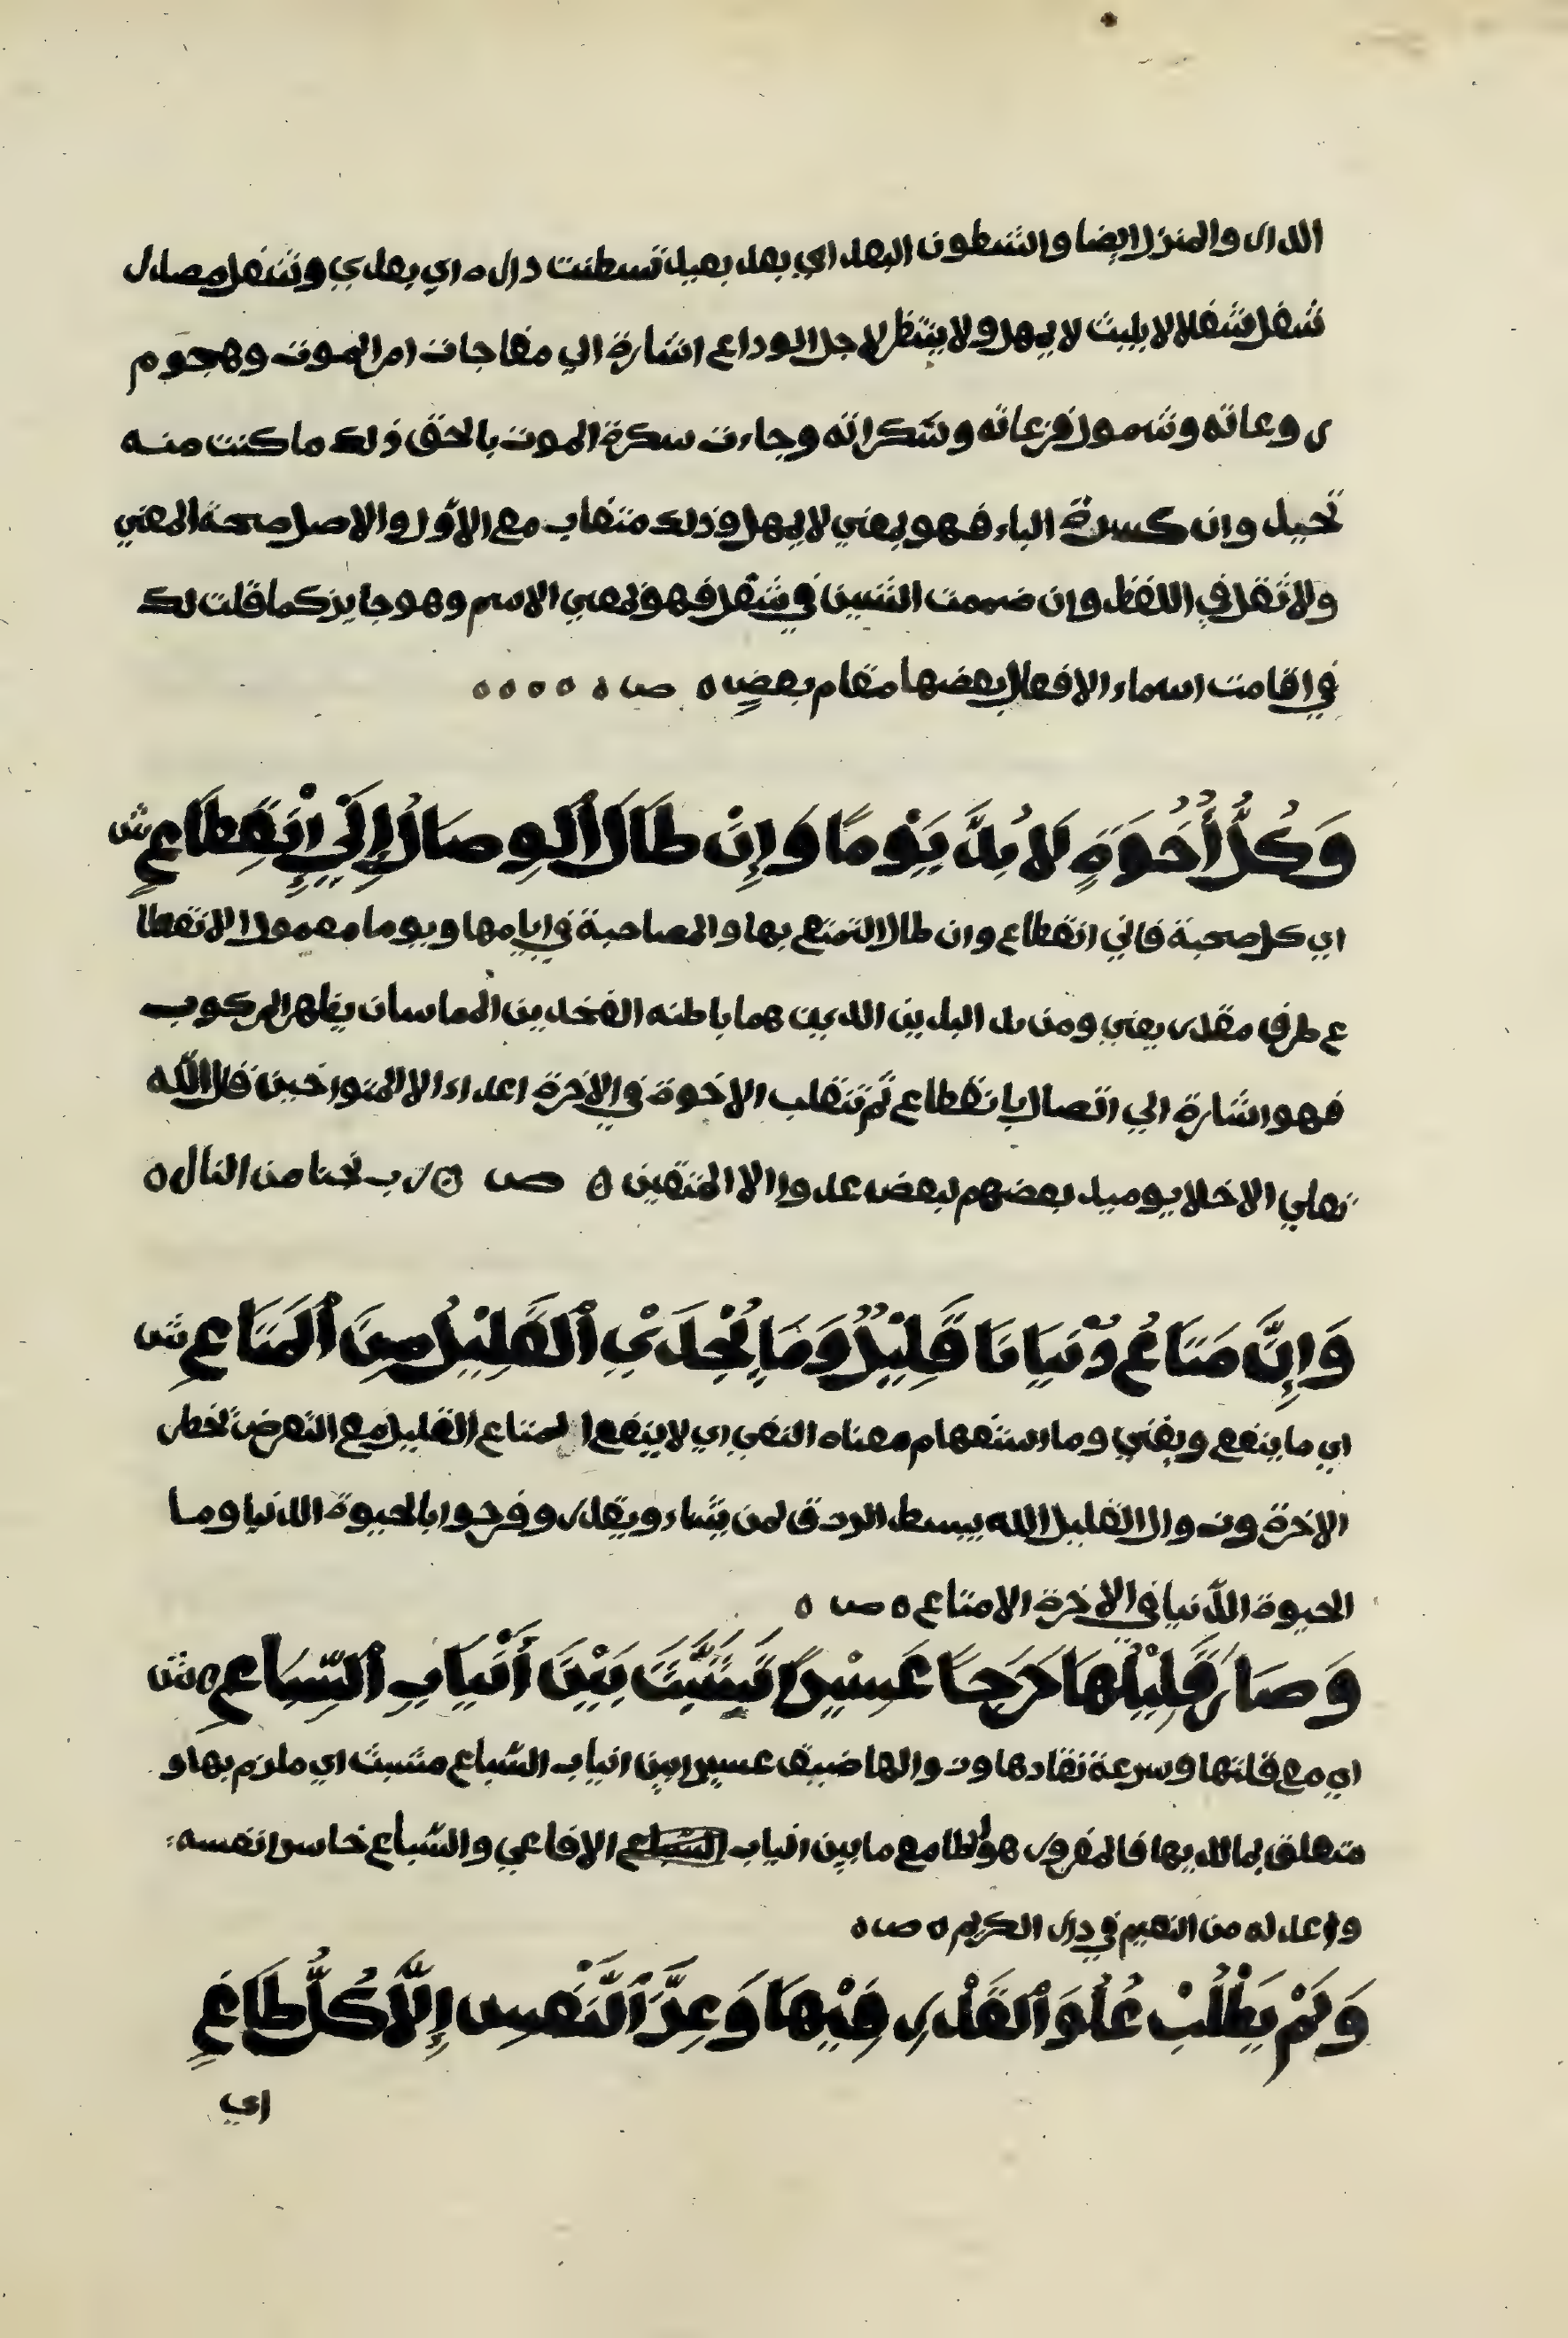 الدار والمنزل ايضا والشطون البعد اي بعد بعيد تسطنت داره اي بعدي وشغل مصدر
شغل شغلا لا يلبث لا يمهل ولا ينتظر لاجل الوداع اشارة الي مفاجات امر الموت وهجوم
روعاته وشمول فزعاته وسكراته وجاءت سكرة الموت بالحق ذلك ما كنت منه
تحيد وان كسرة الباء فهو بمعني لا يمهل وذلك متقاب مع الاول والاصل صحة المعني
ولا ثقل في اللفظ وان ضممت الشين في شغل فهو بمعني الاسم وهو جايز كما قلت لك
في اقامت اسماء الافعال بعضها مقام بعض ه ص ه ه ه ه ه
وَكُلُّ أُخُوَةٍ لَا بُدَّ يَوْمًا وَإِنْ طَالَ ٱلْوِصَالُ إِلَى ٱنْقِطَاعِ ش
اي كل صحبة فالي انقطاع وان طال التمتع بها والمصاحبة في ايامها ويوما معمول الانقطا
ع ظرف مقدر يعني ومن بد البدين الذين هما باطنه الفخذين المماسان بظهر المركوب
فهو اشارة الي اتصال بانقطاع ثم تنقلب الاخوة في الاخرة اعداء الا المتواخين قال الله
تعلي الاخلا يوميد بعضهم لبعض عدو الا المتقين ه ص ه رب نجنا من النار ه
وَإِنَّ مَتَاعُ دُنْيَانَا قَلِيْلٌ وَمَا يُجْدِيْ ٱلْقَلِيْلُ مِنَ ٱلْمَتَاعِ ش
اي ما ينفع ويغني وما استفهام معناه النفي اي لا ينفع المتاع القليل مع التعرض لخطر
الاخرة وزوال القليل الله يبسط الرزق لمن يشاء ويقدر وفرحوا بالحيوة الدنيا وما
الحيوة الدنيا في الاخرة الا متاع ه ص ه
وَصَارَ قَلِيْلُهَا حَرَجًا عَسِيْرًا تَشَبَّثَ بَيْنَ أَنْيَابِ ٱلسِّبَاعِ ه ش
اي مع قلتها وسرعة نفادها وزوالها ضيق عسير بين انياب السباع متشبث اي ملزم بها و
متعلق بما لديها فالمغرور هو الطامع ما بين انياب السباع الافاعي والسباع خاسرا نفسه
وما عد له من النعيم في دار الكريم ه ص ه
وَلَمْ يَطْلُبْ عُلُوَ ٱلْقَدْرِ فِيْهَا وَعِزَّ ٱلنَّفْسِ إِلَّا كُلُّ طَاغِ
اي